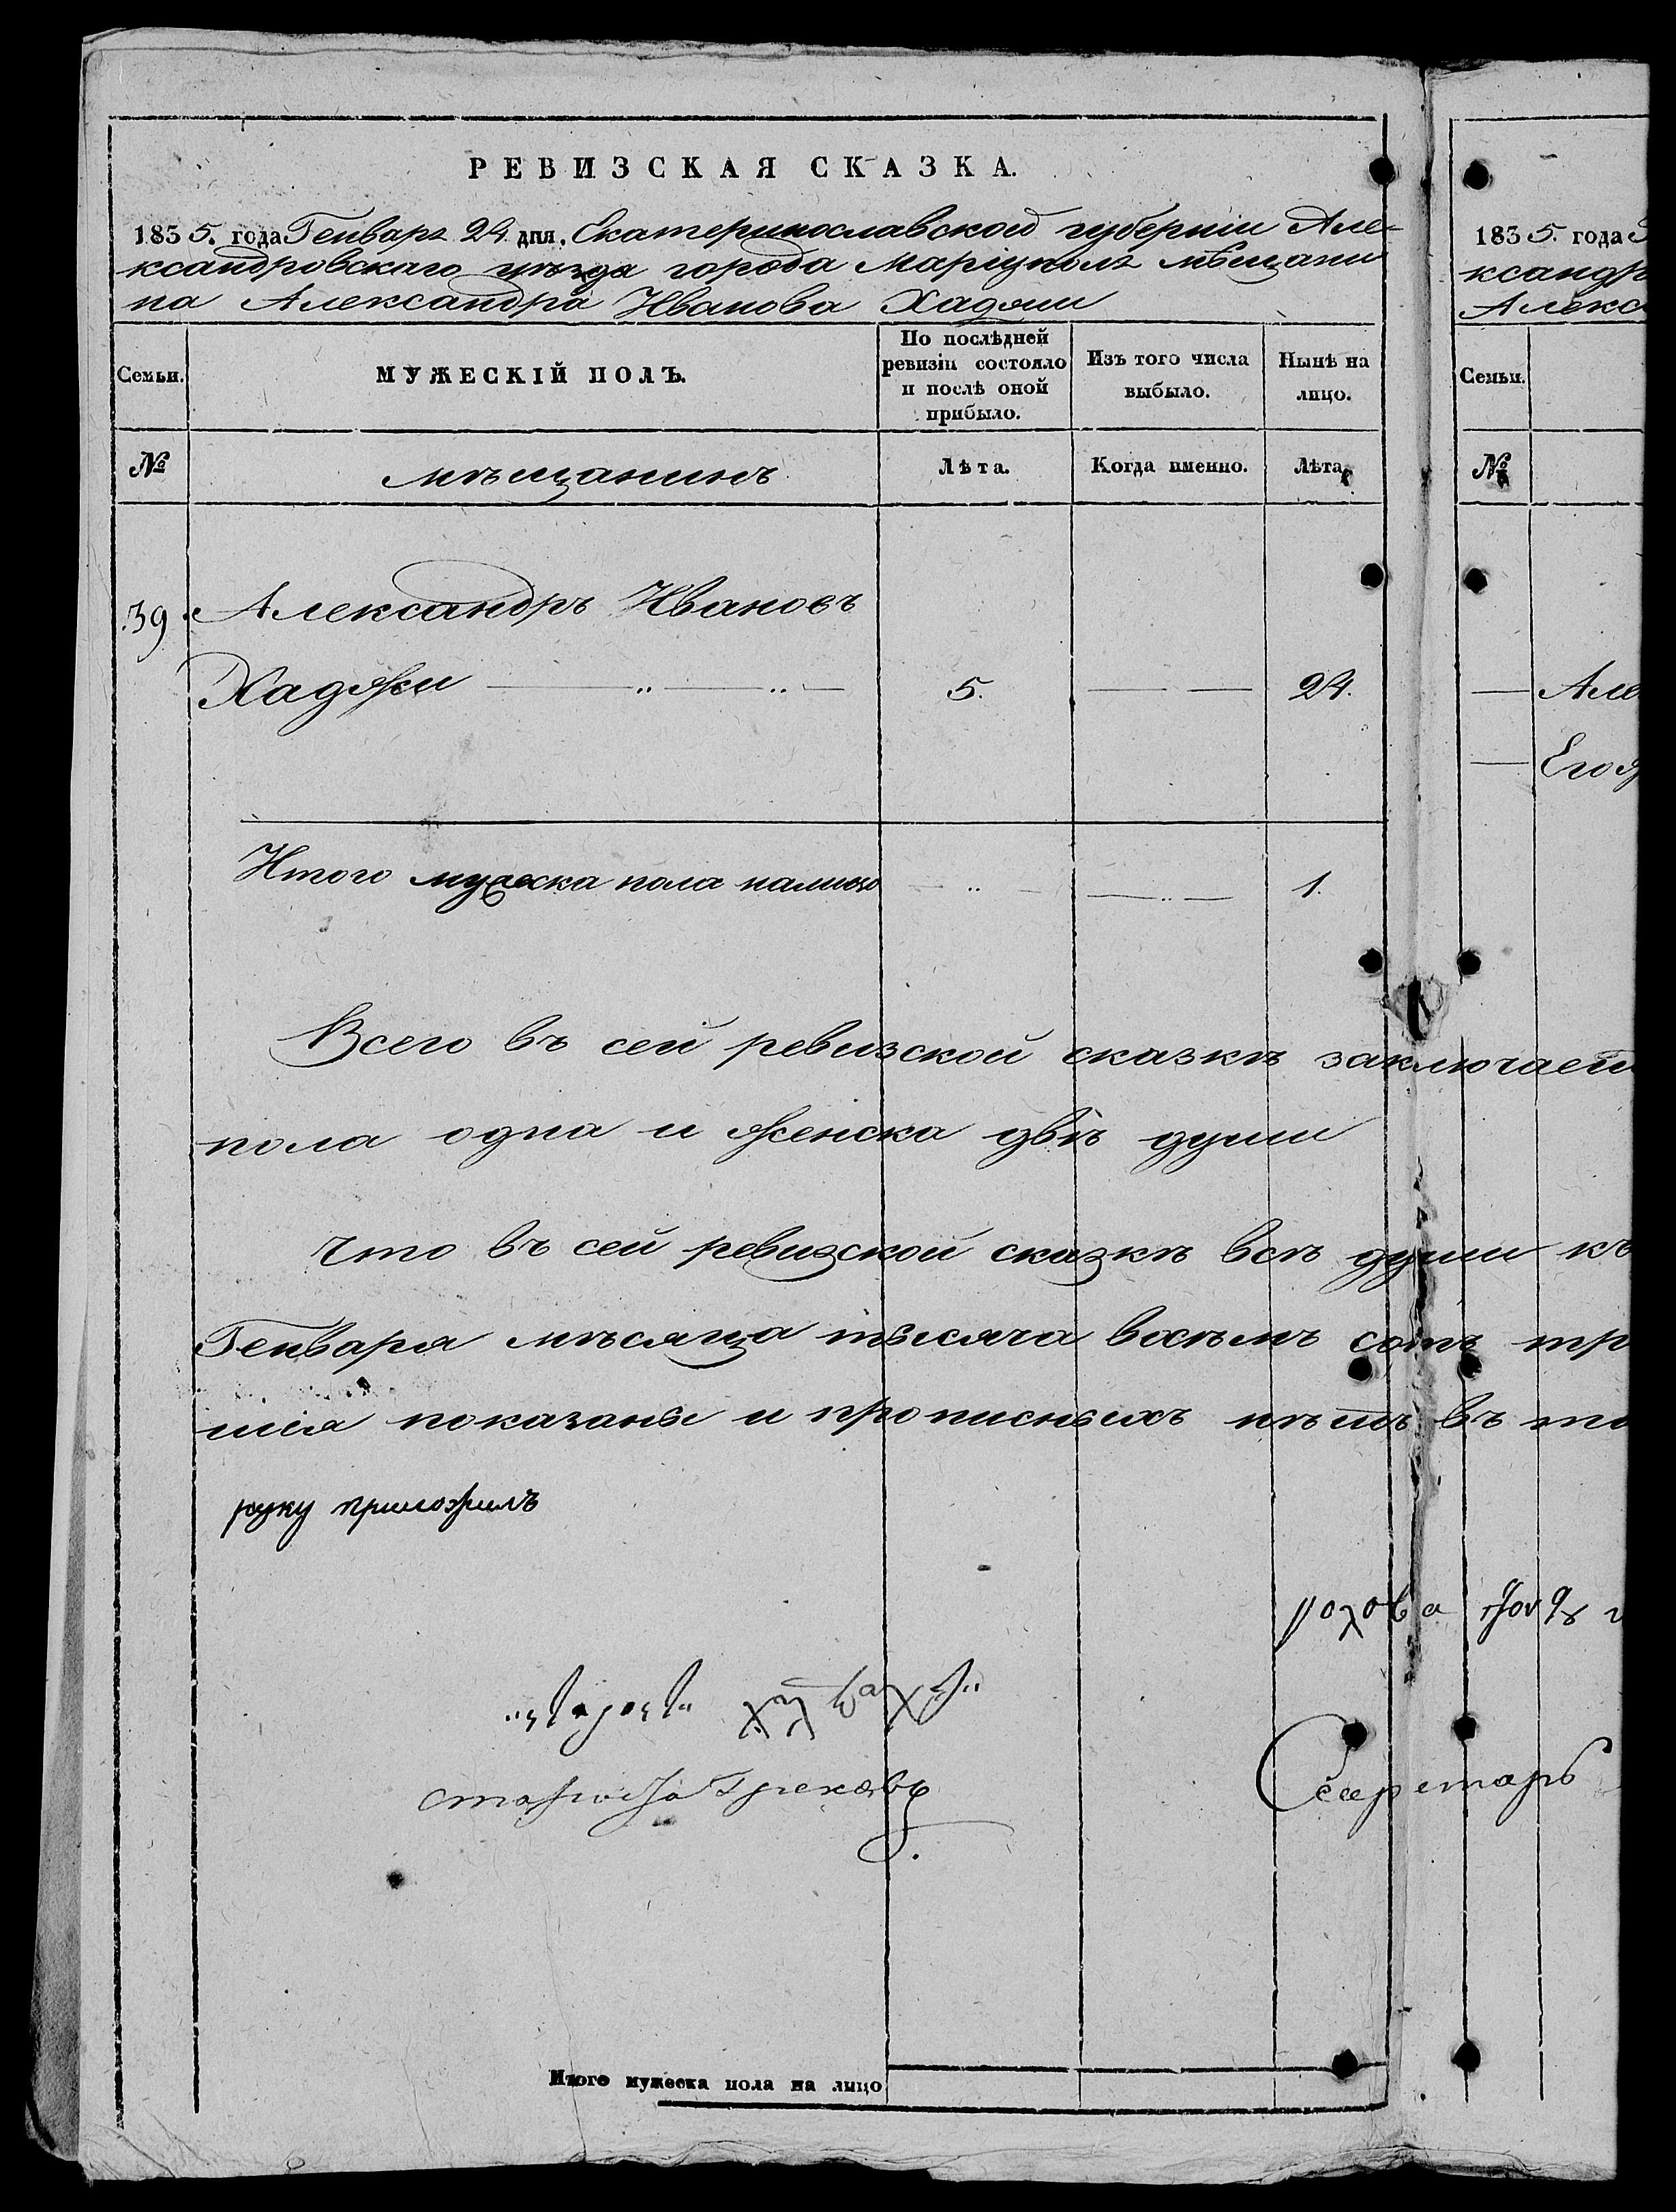 РЕВИЗСКАЯ СКАЗКА.
1835. года Генваря 24 дня, Екатеринославской губернiи Але-
ксандровскаго уѣзда города Марiуполя мѣщани
на Александра Иванова Хаджи
Семьи.
МУЖЕСКIЙ ПОЛЪ.
По послѣдней
ревизiи состояло
и послѣ оной
прибыло.
Изъ того числа
выбыло.
Нынѣ на
лицо.
№
мѣщанинъ
Лѣта.
Когда именно.
Лѣта.
39. Александръ Ивановъ
Хаджи 5. 24.
Итого мужеска пола налицо 1.
Всего въ сей ревизской сказкѣ заключает
пола одна и женска двѣ души
Что въ сей ревизской сказкѣ всѣ души къ
Генваря мѣсяца тысяча восемъ сотъ тр
шiя показаны и прописныхъ нѣтъ въ то
руку приложилъ
Грековъ
Секретарь
Итого мужеска пола на лицо
1835. года
ксандр
Алекс
Семьи.
№
Але
Его